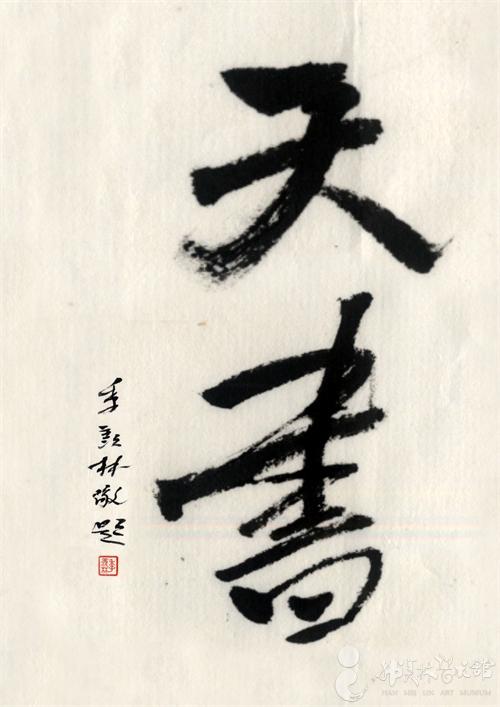 天書
季羨林敬題
韩美林艺术馆
HAN MEI LIN ART MUSEUM